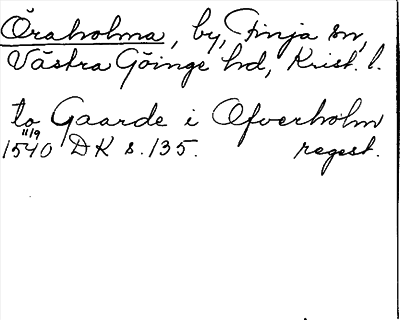 Öraholma, by, Finja sn,
Västra Göinge hd, Krist. l.
to Gaarde i Ofverholm
11/9
1540 DK s. 135. regest.